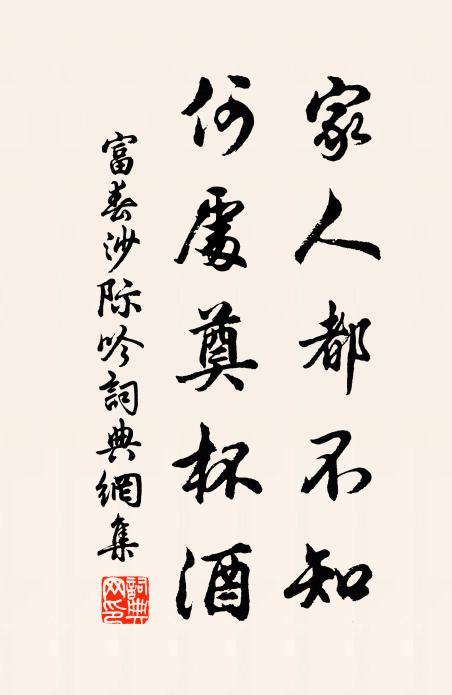 家人都不知
何處奠杯酒
富春沙际吟詞典網集
詞典網印